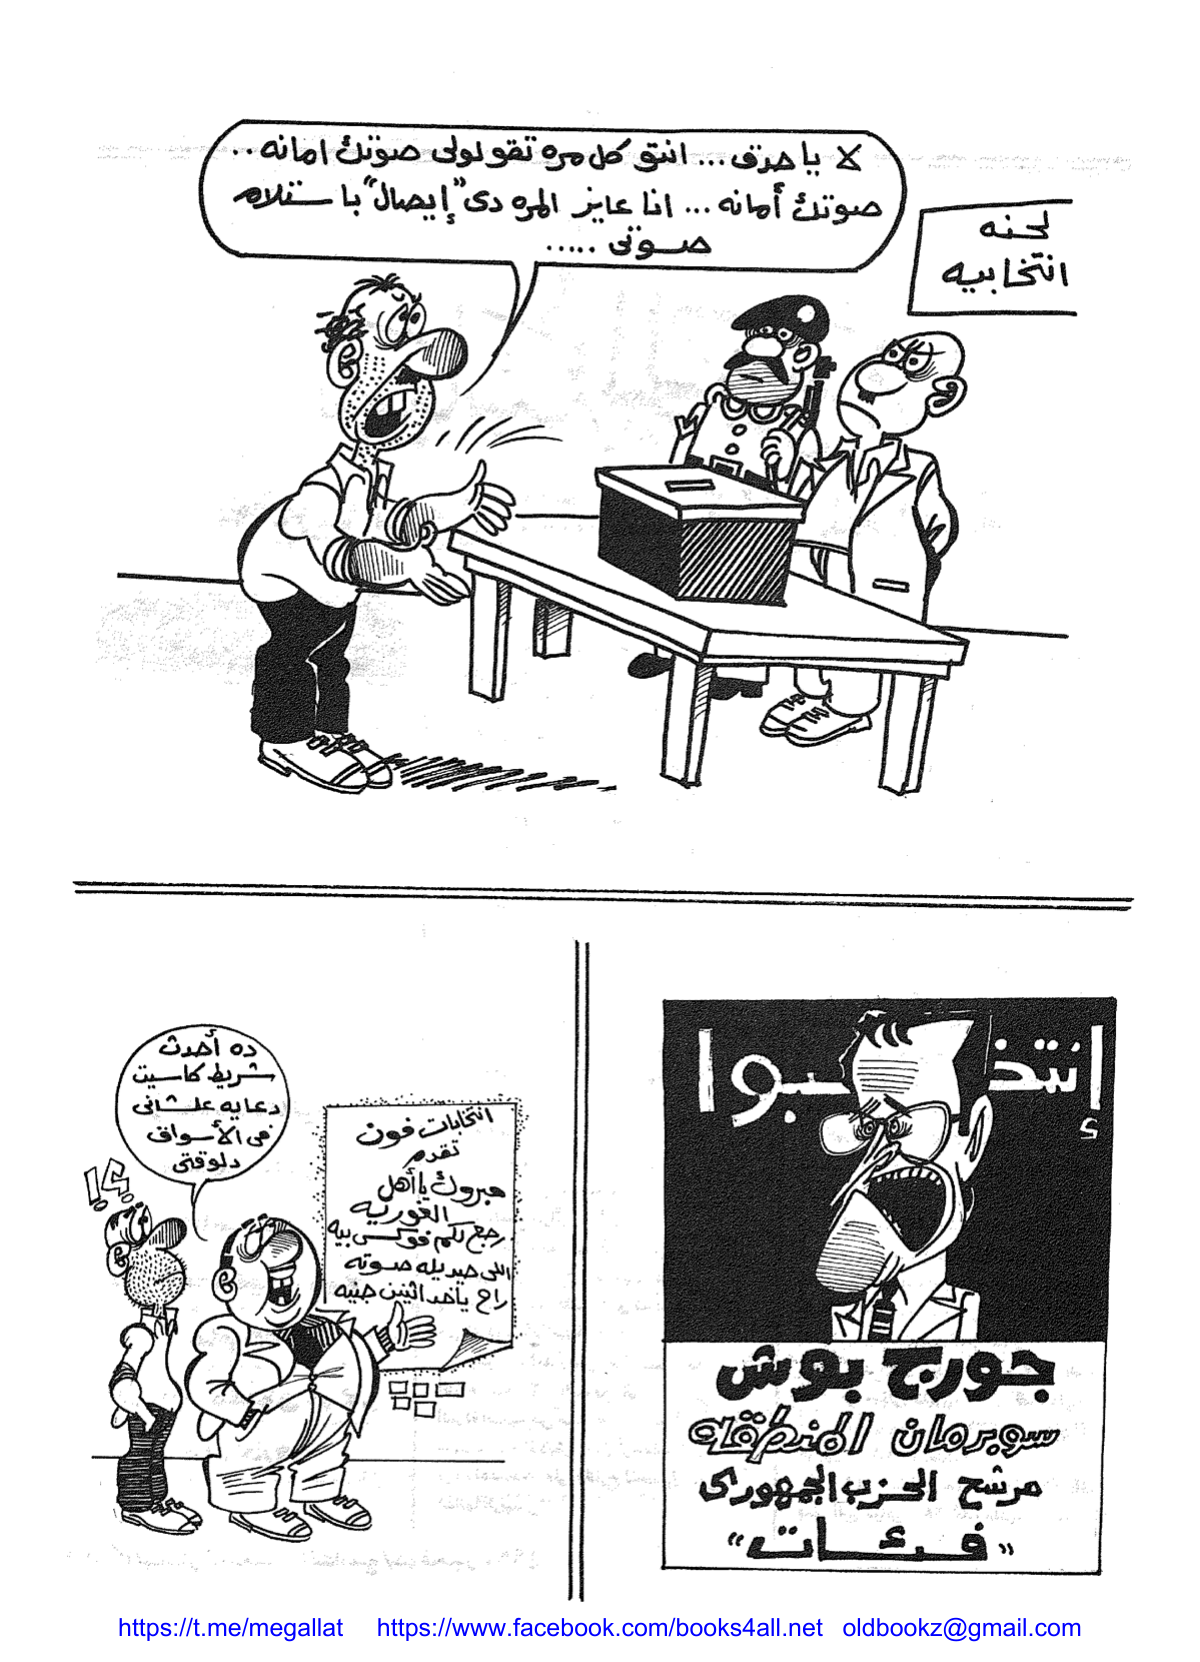 لا يا حدق... انتو كل مره تقولولى صوتك امانه..
صوتك أمانه... انا عايز المره دى "إيصال" باستلام
صوتى .....
لجنه
انتخابيه
ده أحدث
شريط كاسيت
دعايه علشانى
فى الأسواق
دلوقتى
!؟!
انتخابات فون
تقدم
مبروك يا أهل
الغوريه
رجع لكم فوكس بيه
اللى حيديله صوته
راح ياخد اتنين جنيه
إنتخبوا
جورج بوش
سوبرمان المنطقه
مرشح الحزب الجمهورى
"فئات"
https://t.me/megallat https://www.facebook.com/books4all.net oldbookz@gmail.com